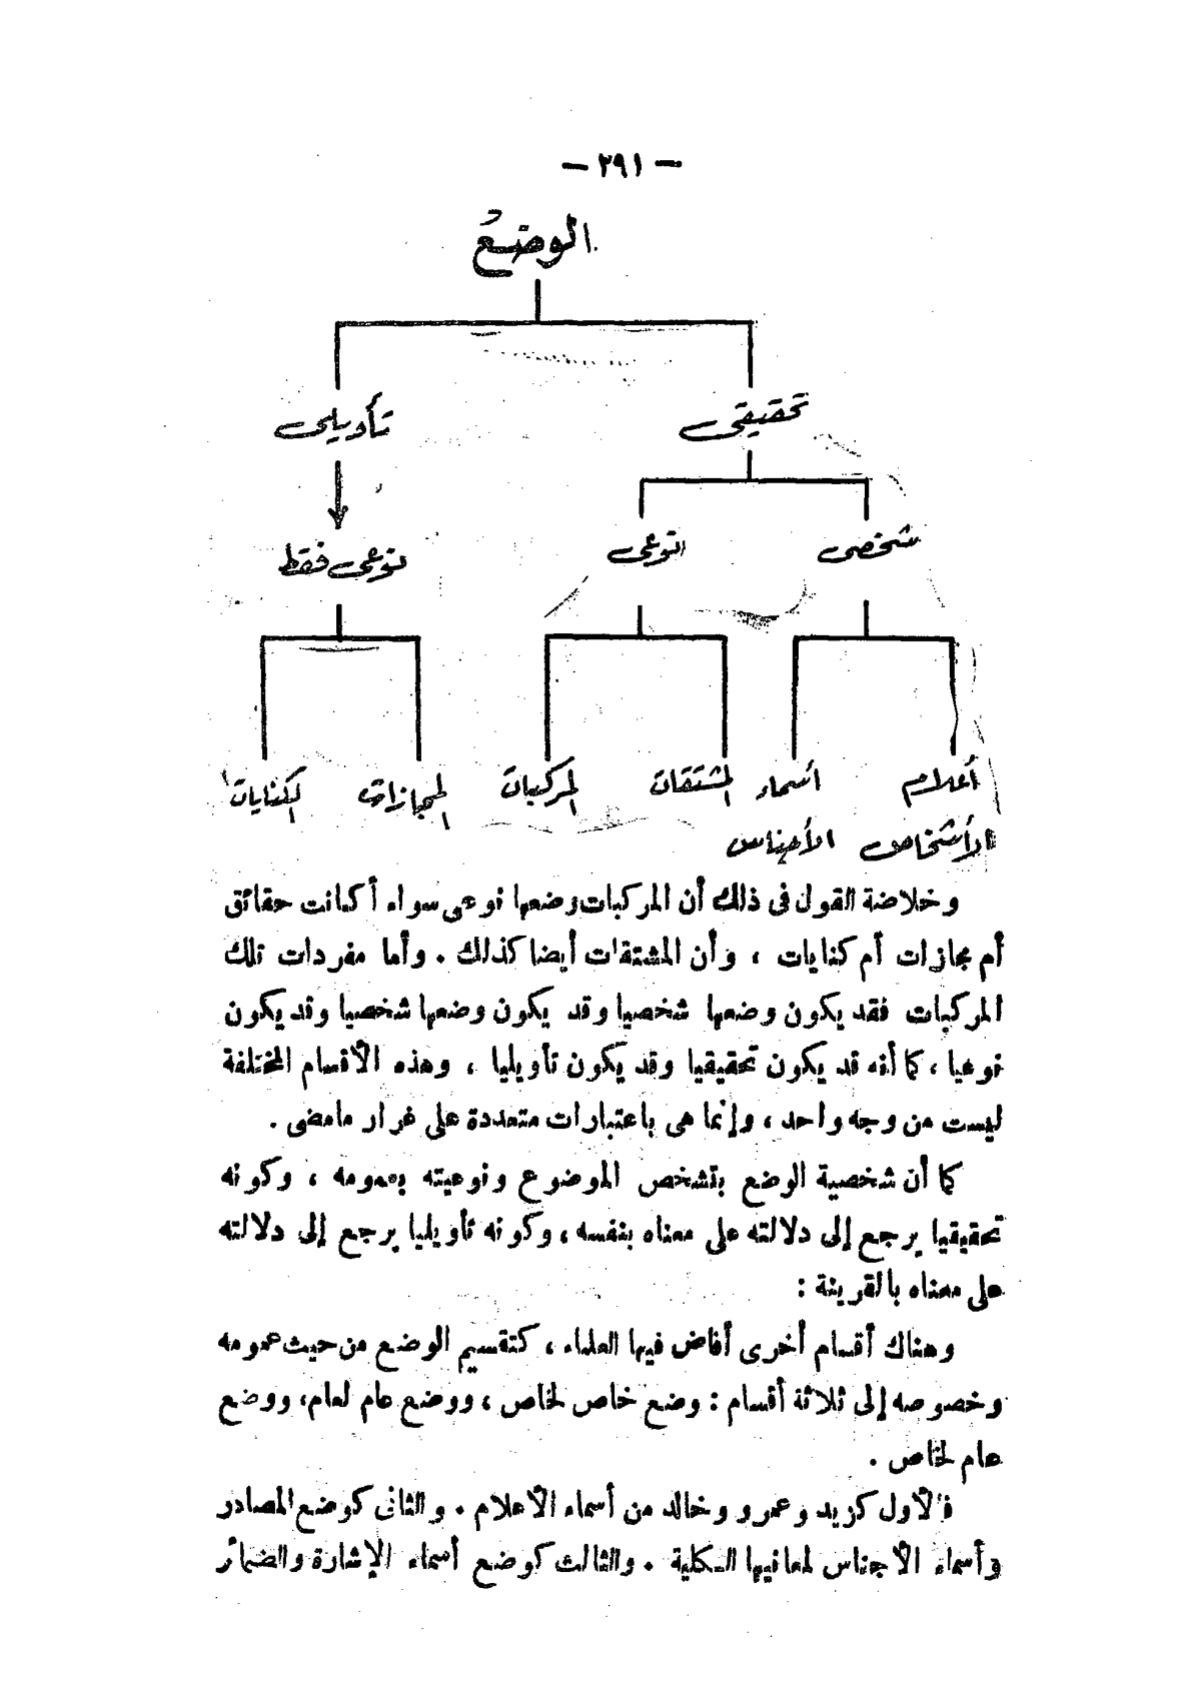 — ٢٩١ —
الوضعُ
تحقيقى تأويلى
شخصى نوعى نوعى فقط
أعلام أسماء المشتقات المركبات المجازات الكنايات
الأشخاص الأجناس
وخلاصة القول فى ذلك أن المركبات وضعها نوعى سواء أكانت حقائق
أم مجازات أم كنايات ، وأن المشتقات أيضا كذلك . وأما مفردات تلك
المركبات فقد يكون وضعها شخصيا وقد يكون وضعها شخصيا وقد يكون
نوعيا ، كما أنه قد يكون تحقيقيا وقد يكون تأويليا ، وهذه الأقسام المختلفة
ليست من وجه واحد ، وإنما هى باعتبارات متعددة على غرار مامضى .
كما أن شخصية الوضع بتشخص الموضوع ونوعيته بعمومه ، وكونه
تحقيقيا يرجع إلى دلالته على معناه بنفسه ، وكونه تأويليا يرجع إلى دلالته
على معناه بالقرينة :
وهناك أقسام أخرى أفاض فيها العلماء ، كتقسيم الوضع من حيث عمومه
وخصوصه إلى ثلاثة أقسام : وضع خاص لخاص ، ووضع عام لعام، ووضع
عام لخاص .
فالأول كزيد وعمرو وخالد من أسماء الأعلام . والثانى كوضع المصادر
وأسماء الأجناس لمعانيها الكلية . والثالث كوضع أسماء الإشارة والضمائر